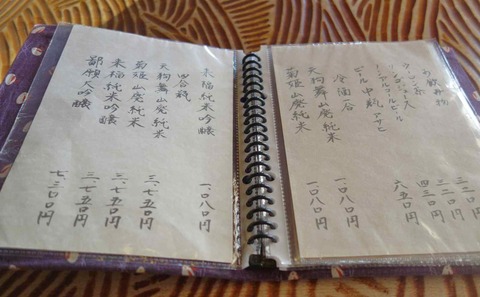 お飲み物
ウーロン茶
ノンアルコールビール 四三〇円
ビール中瓶 アサヒ 六五〇円
冷酒一合
天狗舞山廃純米 一、〇八〇円
菊姫山廃純米 一、〇八〇円
来福純米吟醸 一、〇八〇円
四合瓶
天狗舞山廃純米 三、七五〇円
菊姫山廃純米 三、七五〇円
来福純米吟醸 三、七五〇円
鄙願大吟醸 七、三〇〇円